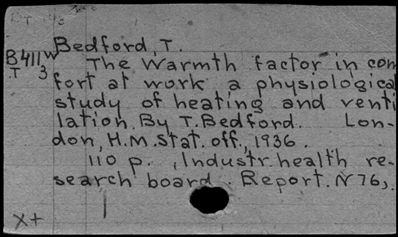 Bedford, T.
B411w The Warmth factor in com
T 3 fort at work a physiological
study of heating and venti
lation. By T. Bedford. Lon-
don, H.M. Stat. off., 1936.
110 p. (Industr. health re-
search board. Report. N 76).
X+